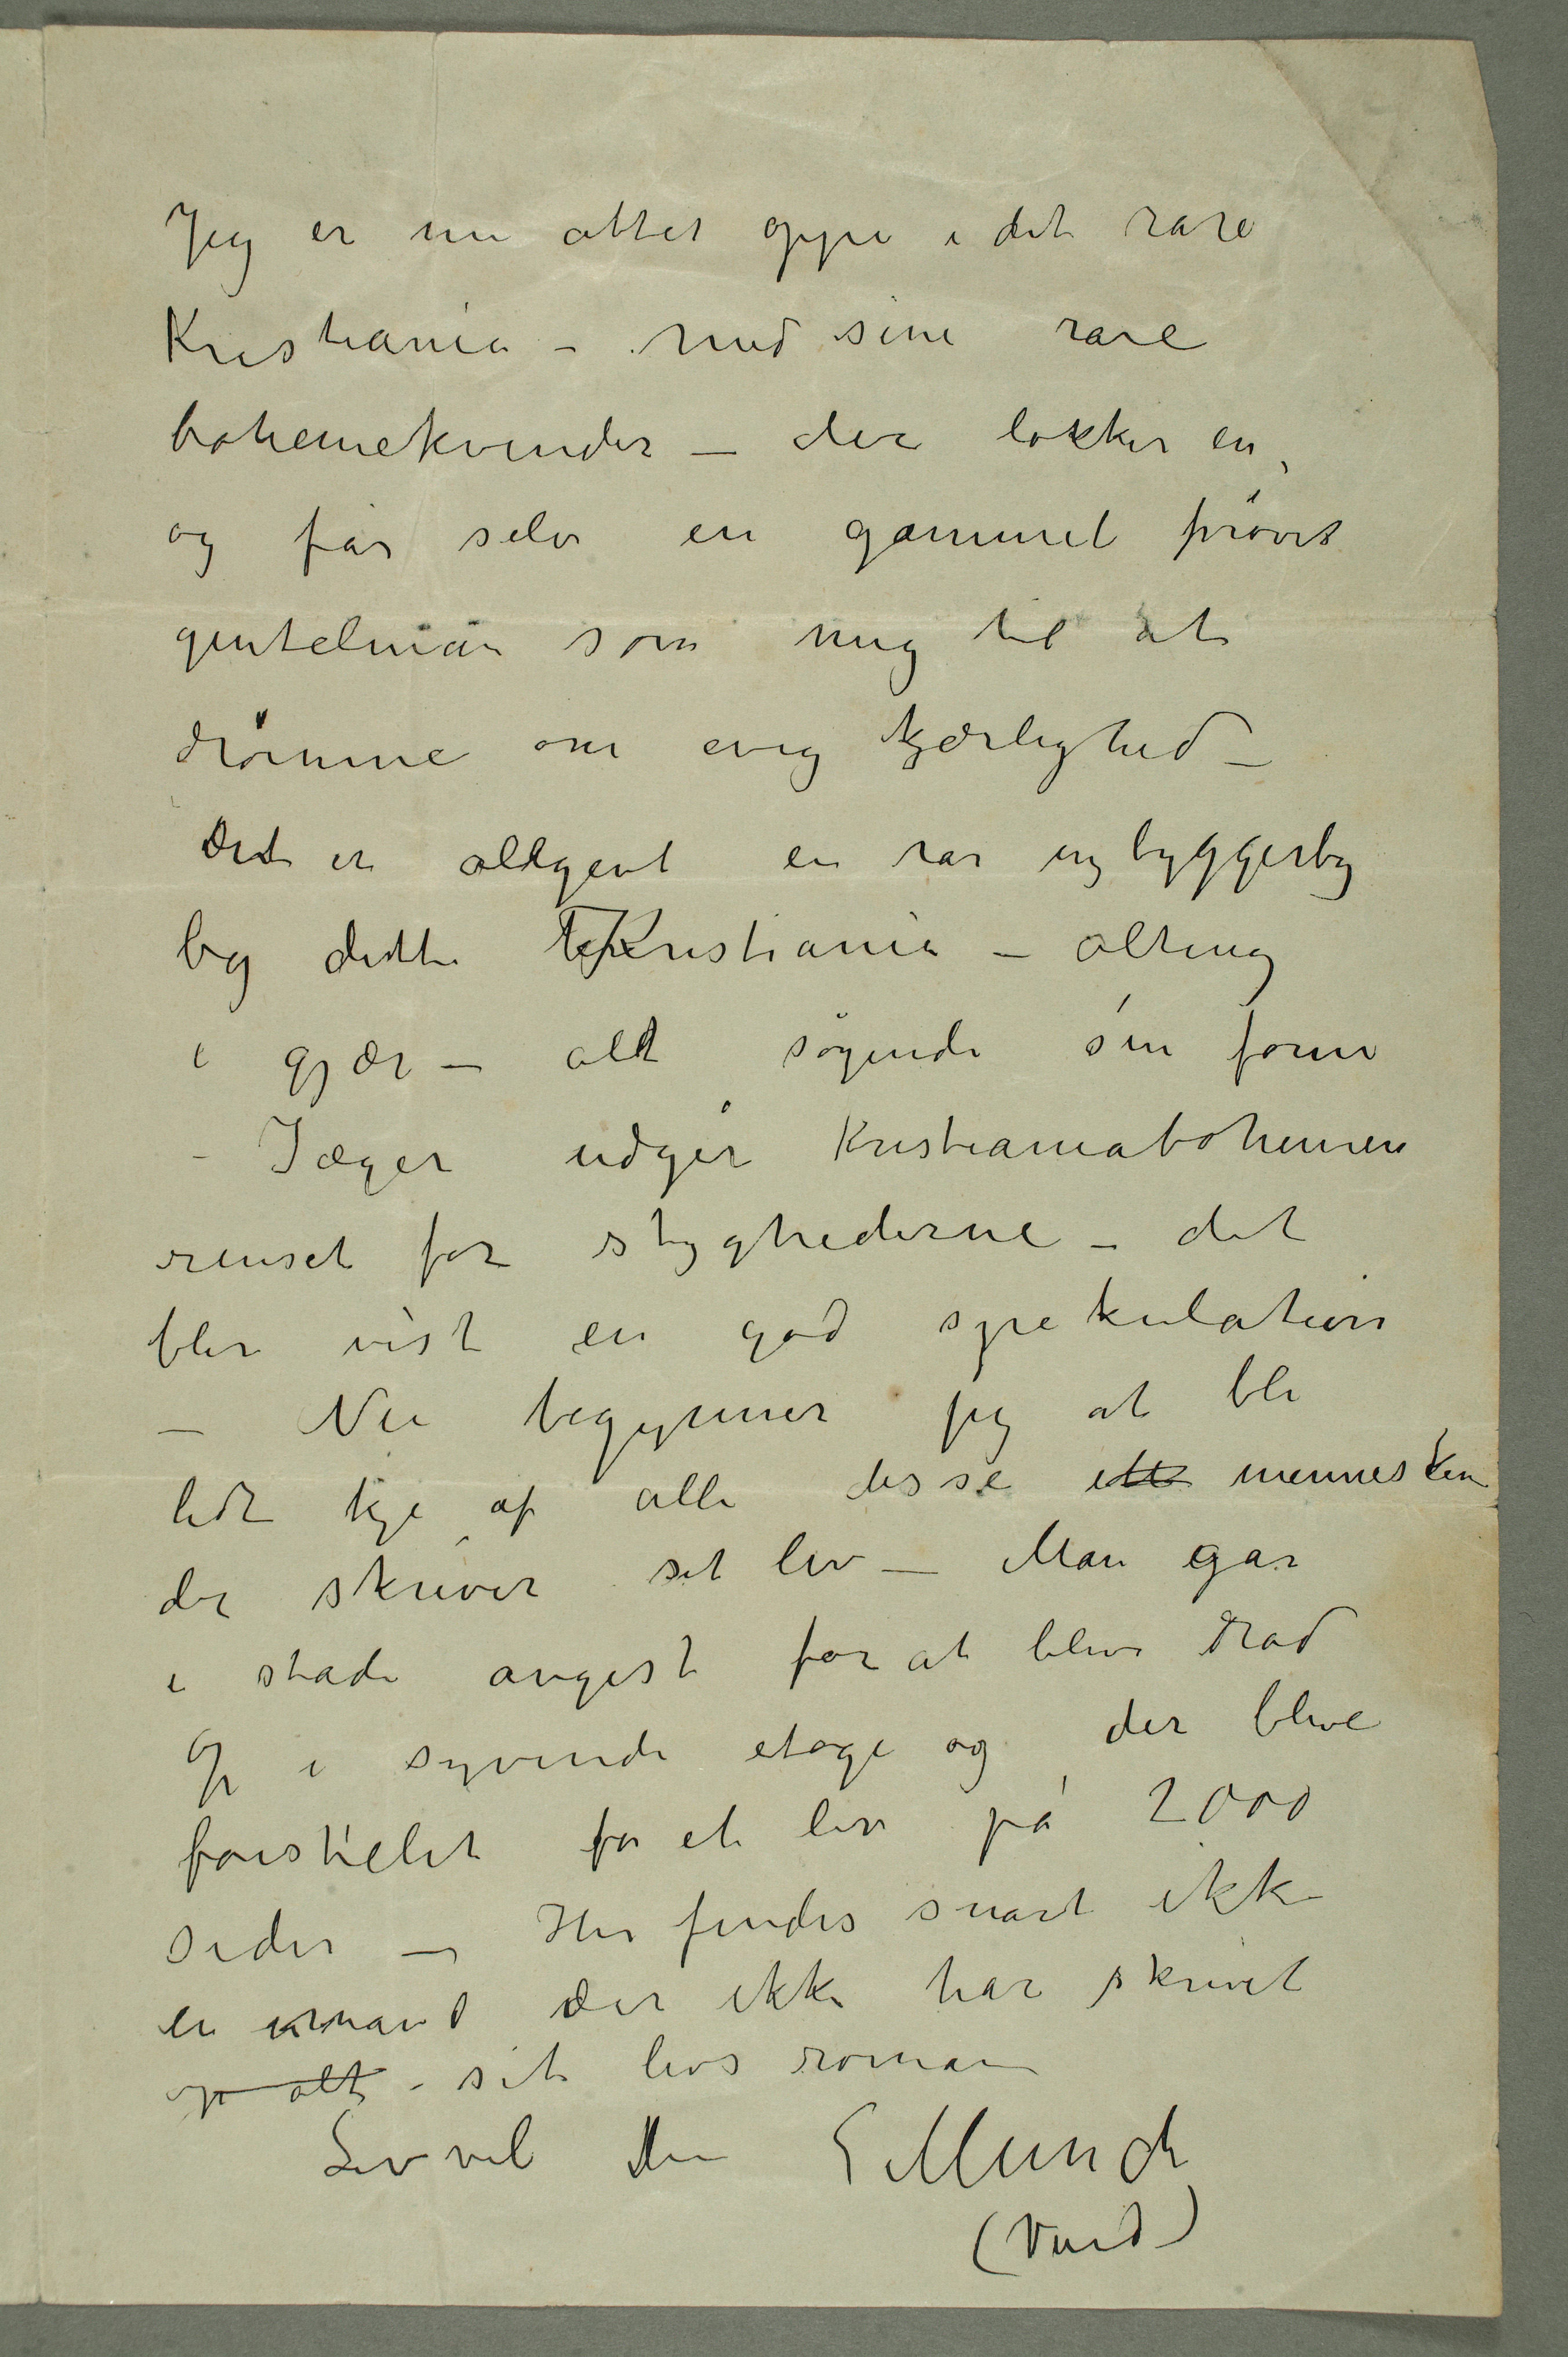 Jeg er nu atter oppe i det rare
Kristiania – med sine rare
bohemekvinder – der lokker en,
og får selv en gammel prøvet
gentelman som mig til at
drømme om evig kjærlighed –
Det er altgent en rar nybyggerby
by dette Kristiania – alting
i gjær – alt søgende sin form
– Jæger udgir Kristianiabohemen
renset for styghederne – det
blir vist en god spekulation
– Nu begynner jeg at bli
lidt kje af alle disse mennesker
der skriver sit liv – Man går
i stadi angest for at blive
op i syvende etage og der blive
forstillet for et liv på 2000
sider – Her findes snart ikke
en mand der ikke har skrivet
op alt – sit livs roman
Lev vel Din E Munch
(Vend)